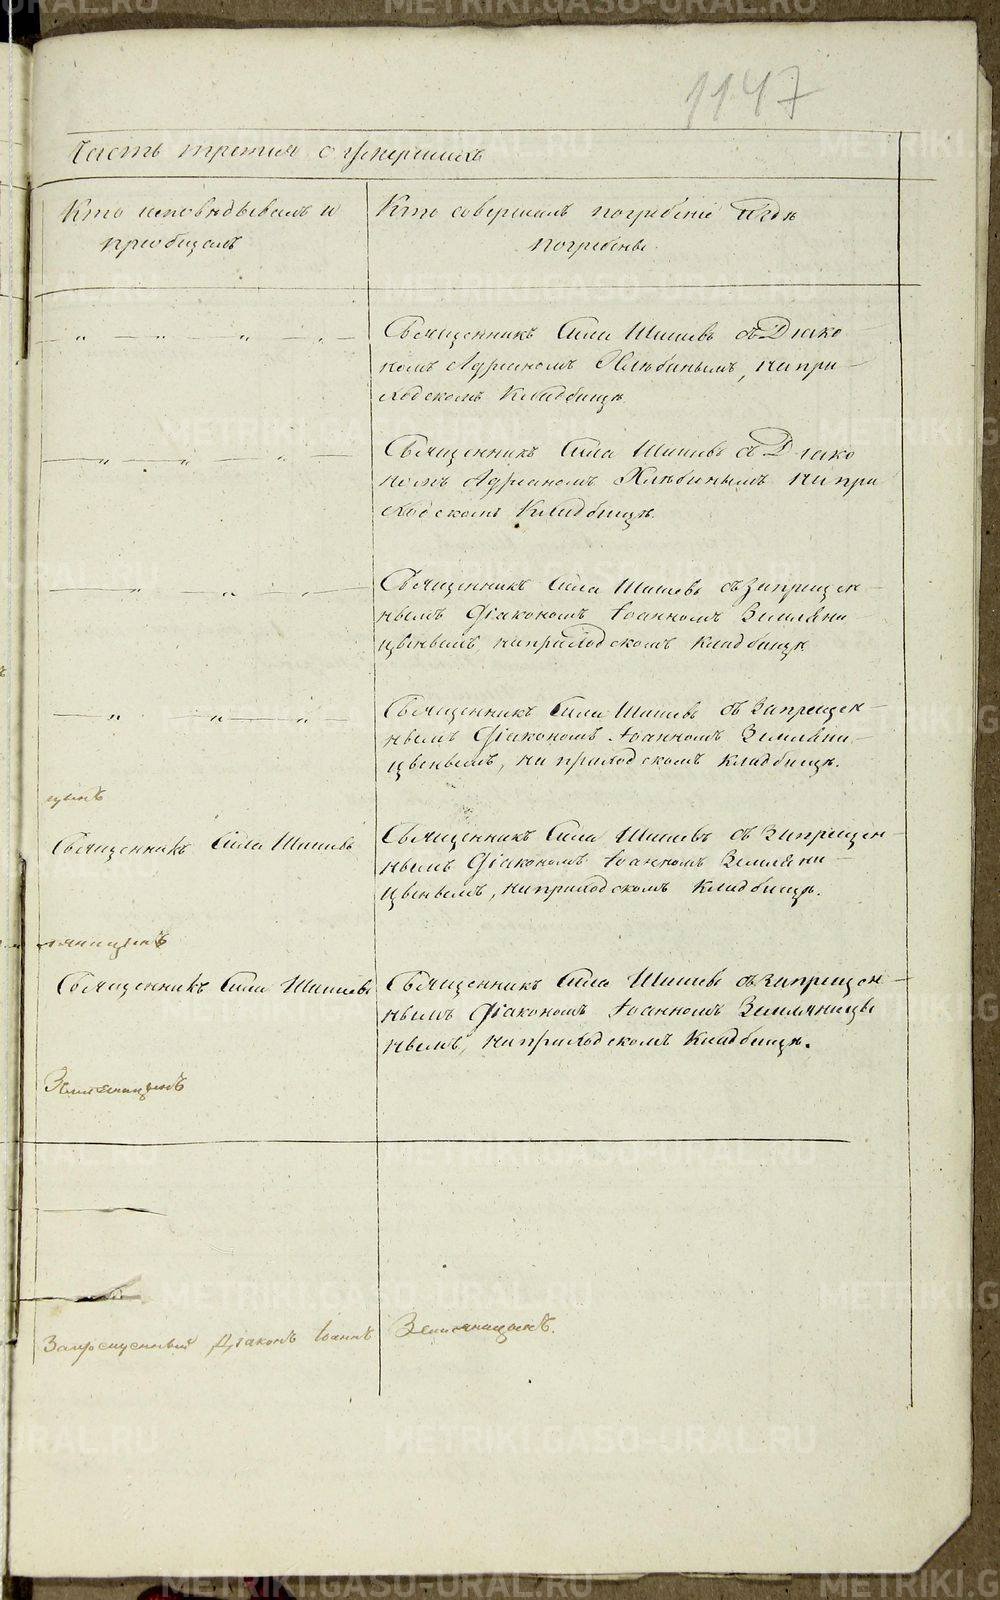 1147
Часть третия о умершихъ
Кто исповѣдывалъ и
приобщалъ
Кто совершалъ погребение и гдѣ
погребены.
Священникъ Сила Шишевъ съ Диако
номъ Адрианомъ Хлѣбинымъ, на при-
ходскомъ Кладбищѣ
Священникъ Сила Шишевъ съ Диако
номъ Адрианомъ Хлѣбинымъ на при
ходскомъ Кладбищѣ.
Священникъ Сила Шишевъ съ запрещен-
нымъ Діакономъ Іоанномъ Земляни-
цынымъ на приходскомъ Кладбищѣ
Священникъ Сила Шишевъ съ Запрещен-
нымъ Діакономъ Іоанномъ Земляни-
цынымъ, на приходскомъ Кладбищѣ.
цынъ
Священникъ Сила Шишевъ
Священникъ Сила Шишевъ съ Запрещен-
нымъ Діакономъ Іоанномъ Земляни-
цынымъ, на приходскомъ Кладбищѣ.
ляницынъ
Священникъ Сила Шишевъ
Священникъ Сила Шишевъ съ Запрещен-
нымъ Діакономъ Іоанномъ Земляницы
нымъ, на приходскомъ Кладбищѣ.
Земляницынъ
Запрещенный Диаконъ Іоаннъ Земляницынъ.
METRIKI.GASO-URAL.RU